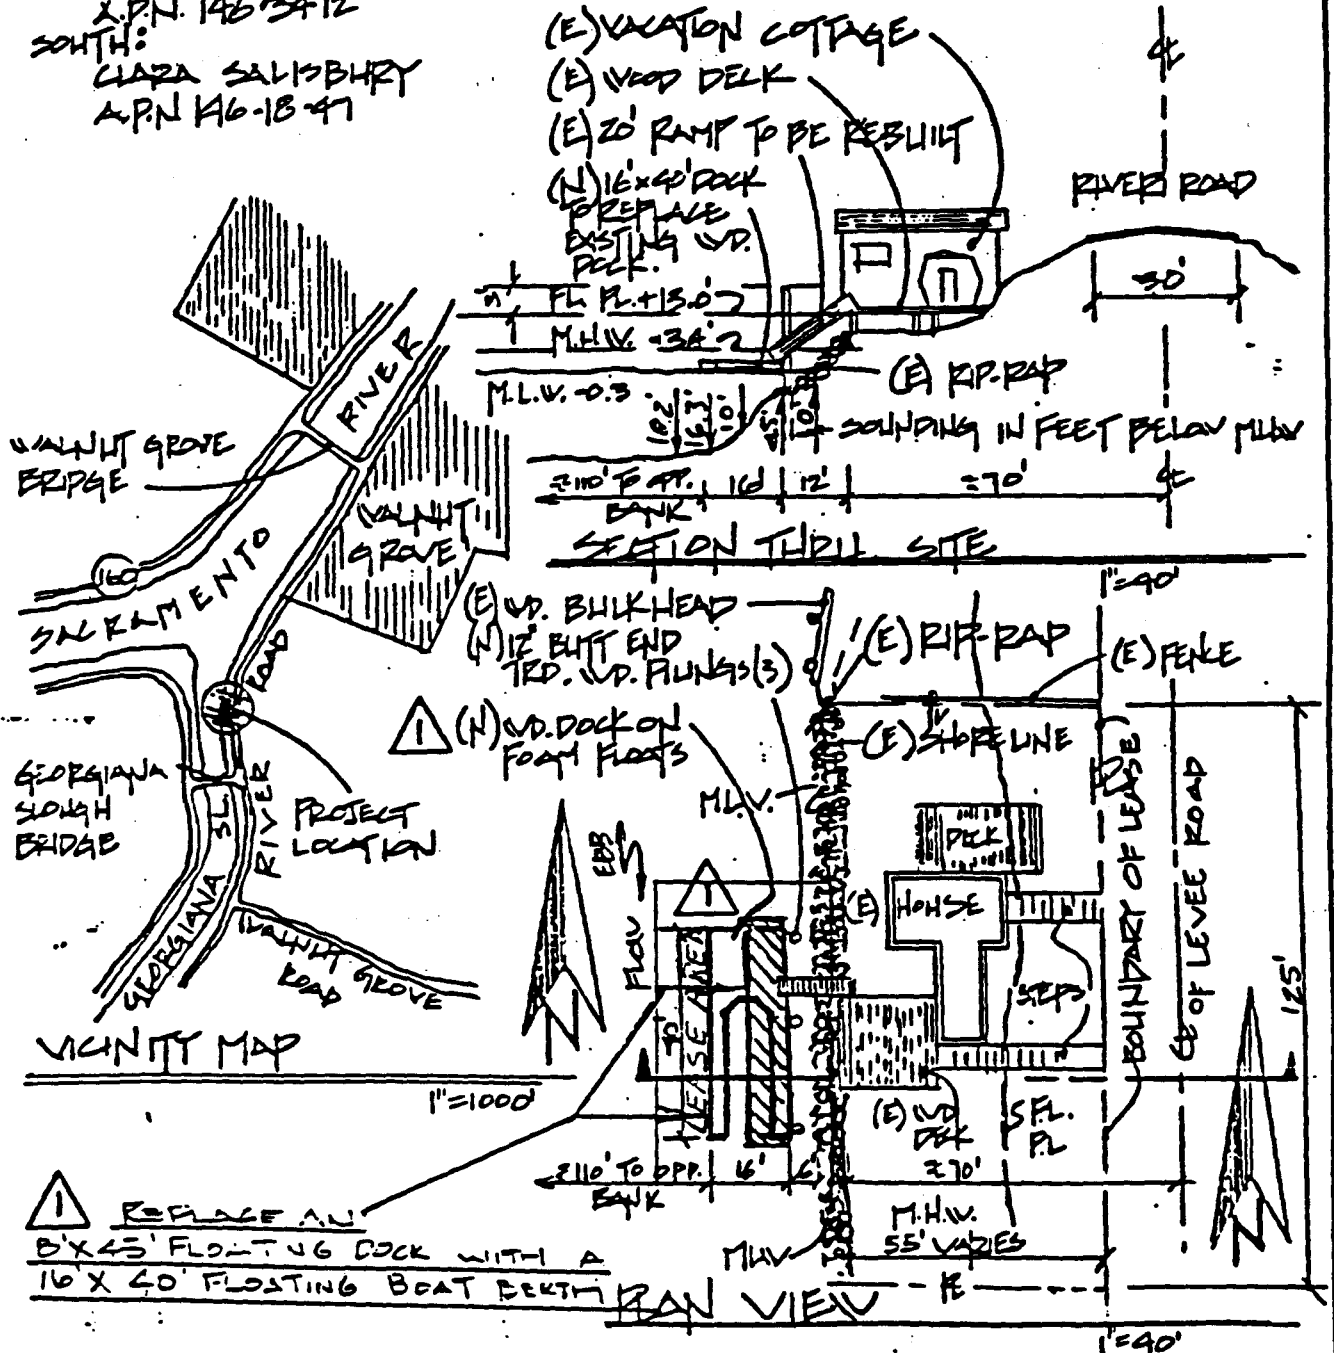 A.P.N. 146-34-12
SOUTH:
CLARA SALISBURY
A.P.N 146-18-47
(E) VACATION COTTAGE
(E) WOOD DECK
(E) 20' RAMP TO BE REBUILT
(N) 16'x40' DOCK
TO REPLACE
EXISTING WD.
DOCK.
FL. PL. +13.0'
M.H.W. +3.4'
M.L.W. -0.3
℄
RIVER ROAD
30'
(E) RIP-RAP
SOUNDING IN FEET BELOW MLLW
18.2'
16.3'
10'
4.5'
1.0'
±110' TO OPP.
BANK
16'
12'
±70'
℄
SECTION THRU SITE
1"=40'
RIVER
WALNUT GROVE
BRIDGE
WALNUT
GROVE
160
SACRAMENTO
ROAD
GEORGIANA
SLOUGH
BRIDGE
SL.
RIVER
PROJECT
LOCATION
GEORGIANA
WALNUT GROVE
ROAD
VICINITY MAP
1"=1000'
(E) WD. BULKHEAD
(N) 12" BUTT END
TRD. WD. PILINGS (3)
(E) RIP-RAP
(E) FENCE
1 (N) WD. DOCK ON
FOAM FLOATS
(E) SHORELINE
M.L.W.
EBB
FLOW
1
DECK
(E) HOUSE
STEPS
LEASE AREA
40'
BOUNDARY OF LEASE
℄ OF LEVEE ROAD
125'
(E) WD.
DECK
FL.
PL
±110' TO OPP.
BANK
16'
6'
±70'
M.H.W.
55' VARIES
MHW
PL
1 REPLACE AN
8'X45' FLOATING DOCK WITH A
16' X 40' FLOATING BOAT BERTH
PLAN VIEW
1"=40'